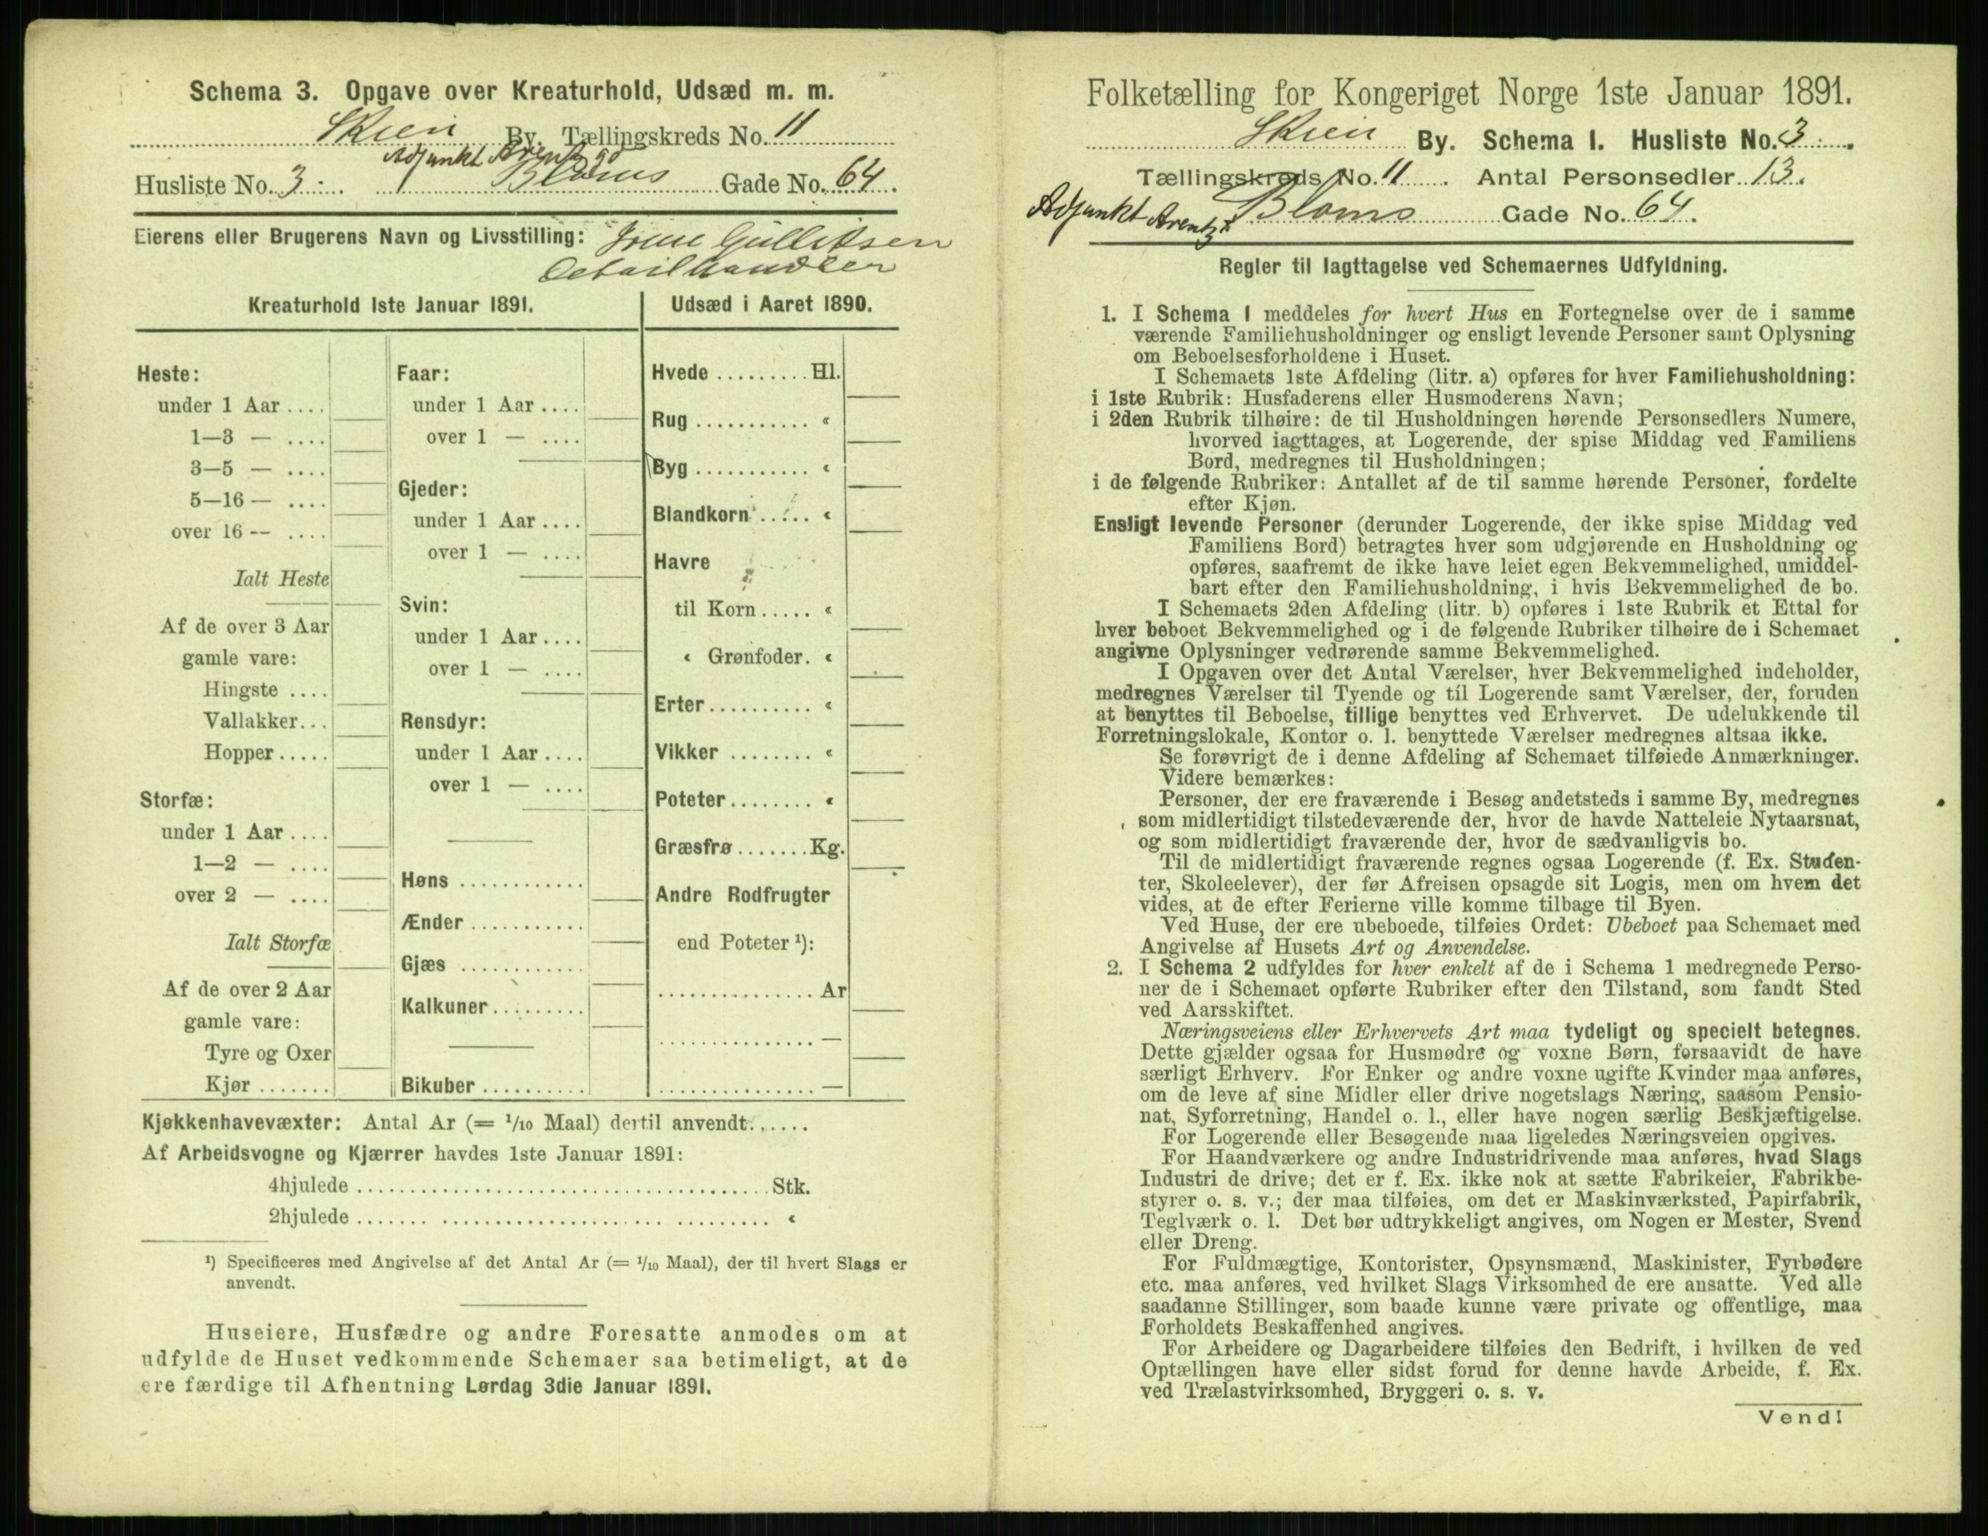 Schema 3. Opgave over Kreaturhold, Udsæd m. m.
Skien By. Tællingskreds No. 11
Adjunkt Arentz gd
Husliste No. 3. Bloms Gade No. 64.
Eierens eller Brugerens Navn og Livsstilling: Gulliksen
Detailhandler
Kreaturhold 1ste Januar 1891.
Heste:
under 1 Aar ....
1—3 — ....
3—5 — ....
5—16 — ....
over 16 -- ....
Ialt Heste
Af de over 3 Aar
gamle vare:
Hingste ....
Vallakker...
Hopper.....
Storfæ:
under 1 Aar ....
1—2 — ....
over 2 — ....
Ialt Storfæ
Af de over 2 Aar
gamle vare:
Tyre og Oxer
Kjør .......
Faar:
under 1 Aar ....
over 1 — ....
Gjeder:
under 1 Aar ....
over 1 — ....
Svin:
under 1 Aar ....
over 1 — ....
Rensdyr:
under 1 Aar ....
over 1 — ....
Høns ............
Ænder ...........
Gjæs ............
Kalkuner.........
Bikuber ..........
Udsæd i Aaret 1890.
Hvede ......... Hl.
Rug ........... «
Byg ........... «
Blandkorn ..... «
Havre
til Korn ..... «
« Grønfoder. «
Erter.......... «
Vikker ........ «
Poteter........ «
Græsfrø....... Kg.
Andre Rodfrugter
end Poteter ¹):
............... Ar
............... —
............... —
Kjøkkenhavevæxter: Antal Ar (= 1/10 Maal) dertil anvendt......
Af Arbeidsvogne og Kjærrer havdes 1ste Januar 1891:
4hjulede ....................................... Stk.
2hjulede ....................................... «
¹) Specificeres med Angivelse af det Antal Ar (= 1/10 Maal), der til hvert Slags er
anvendt.
Huseiere, Husfædre og andre Foresatte anmodes om at
udfylde de Huset vedkommende Schemaer saa betimeligt, at de
ere færdige til Afhentning Lørdag 3die Januar 1891.
Folketælling for Kongeriget Norge 1ste Januar 1891.
Skien By. Schema I. Husliste No. 3.
Tællingskreds No. 11. Antal Personsedler 13.
Adjunkt Arentz Bloms Gade No. 64.
Regler til Iagttagelse ved Schemaernes Udfyldning.
1. I Schema 1 meddeles for hvert Hus en Fortegnelse over de i samme
værende Familiehusholdninger og ensligt levende Personer samt Oplysning
om Beboelsesforholdene i Huset.
I Schemaets 1ste Afdeling (litr. a) opføres for hver Familiehusholdning:
i 1ste Rubrik: Husfaderens eller Husmoderens Navn;
i 2den Rubrik tilhøire: de til Husholdningen hørende Personsedlers Numere,
hvorved iagttages, at Logerende, der spise Middag ved Familiens
Bord, medregnes til Husholdningen;
i de følgende Rubriker: Antallet af de til samme hørende Personer, fordelte
efter Kjøn.
Ensligt levende Personer (derunder Logerende, der ikke spise Middag ved
Familiens Bord) betragtes hver som udgjørende en Husholdning og
opføres, saafremt de ikke have leiet egen Bekvemmelighed, umiddel-
bart efter den Familiehusholdning, i hvis Bekvemmelighed de bo.
I Schemaets 2den Afdeling (litr. b) opføres i 1ste Rubrik et Ettal for
hver beboet Bekvemmelighed og i de følgende Rubriker tilhøire de i Schemaet
angivne Oplysninger vedrørende samme Bekvemmelighed.
I Opgaven over det Antal Værelser, hver Bekvemmelighed indeholder,
medregnes Værelser til Tyende og til Logerende samt Værelser, der, foruden
at benyttes til Beboelse, tillige benyttes ved Erhvervet. De udelukkende til
Forretningslokale, Kontor o. l. benyttede Værelser medregnes altsaa ikke.
Se forøvrigt de i denne Afdeling af Schemaet tilføiede Anmærkninger.
Videre bemærkes:
Personer, der ere fraværende i Besøg andetsteds i samme By, medregnes
som midlertidigt tilstedeværende der, hvor de havde Natteleie Nytaarsnat,
og som midlertidigt fraværende der, hvor de sædvanligvis bo.
Til de midlertidigt fraværende regnes ogsaa Logerende (f. Ex. Studen-
ter, Skoleelever), der før Afreisen opsagde sit Logis, men om hvem det
vides, at de efter Ferierne ville komme tilbage til Byen.
Ved Huse, der ere ubeboede, tilføies Ordet: Ubeboet paa Schemaet med
Angivelse af Husets Art og Anvendelse.
2. I Schema 2 udfyldes for hver enkelt af de i Schema 1 medregnede Perso-
ner de i Schemaet opførte Rubriker efter den Tilstand, som fandt Sted
ved Aarsskiftet.
Næringsveiens eller Erhvervets Art maa tydeligt og specielt betegnes.
Dette gjælder ogsaa for Husmødre og voxne Børn, forsaavidt de have
særligt Erhverv. For Enker og andre voxne ugifte Kvinder maa anføres,
om de leve af sine Midler eller drive nogetslags Næring, saasom Pensio-
nat, Syforretning, Handel o. l., eller have nogen særlig Beskjæftigelse.
For Logerende eller Besøgende maa ligeledes Næringsveien opgives.
For Haandværkere og andre Industridrivende maa anføres, hvad Slags
Industri de drive; det er f. Ex. ikke nok at sætte Fabrikeier, Fabrikbe-
styrer o. s. v.; der maa tilføies, om det er Maskinværksted, Papirfabrik,
Teglværk o. l. Det bør udtrykkeligt angives, om Nogen er Mester, Svend
eller Dreng.
For Fuldmægtige, Kontorister, Opsynsmænd, Maskinister, Fyrbødere
etc. maa anføres, ved hvilket Slags Virksomhed de ere ansatte. Ved alle
saadanne Stillinger, som baade kunne være private og offentlige, maa
Forholdets Beskaffenhed angives.
For Arbeidere og Dagarbeidere tilføies den Bedrift, i hvilken de ved
Optællingen have eller sidst forud for denne havde Arbeide, f. Ex.
ved Trælastvirksomhed, Bryggeri o. s. v.
Vend!